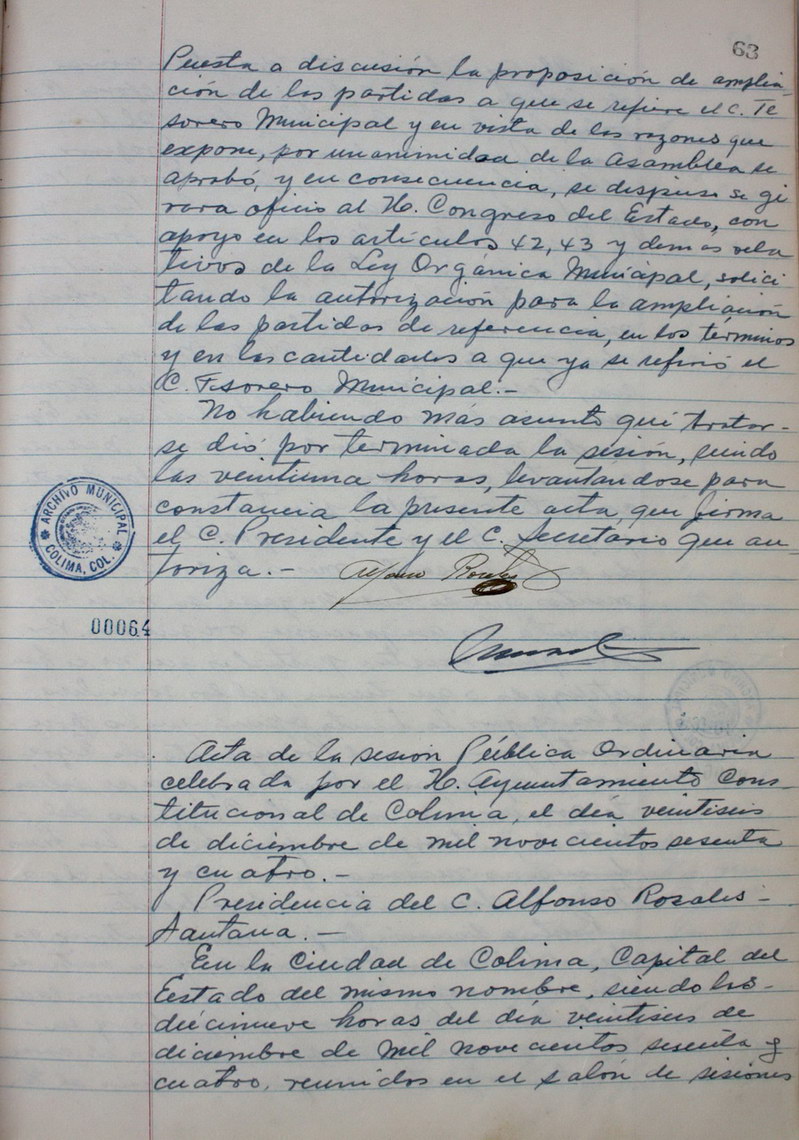 63
Puesta a discusión la proposición de amplia-
ción de las partidas a que se refiere el C. Te
sorero Municipal y en vista de las razones que
expone, por unanimidad de la Asamblea se
aprobó, y en consecuencia, se dispuso se gi
rara oficio al H. Congreso del Estado, con
apoyo en los artículos 42, 43 y demas rela
tivos de la Ley Orgánica Municipal, solici
tando la autorización para la ampliación
de las partidas de referencia, en los términos
y en las cantidades a que ya se refirió el
C. Tesorero Municipal.-
No habiendo más asunto que tratar-
se dió por terminada la sesión, siendo
las veintiuna horas, levantandose para
constancia la presente acta, que firma
el C. Presidente y el C. Secretario que au-
toriza.-
ARCHIVO MUNICIPAL
COLIMA, COL.
00064
Acta de la sesión Pública Ordinaria
celebrada por el H. Ayuntamiento Cons-
titucional de Colima, el día veintiseis
de diciembre de mil novecientos sesenta
y cuatro.-
Presidencia del C. Alfonso Rosales-
Santana.-
En la Ciudad de Colima, Capital del
Estado del mismo nombre, siendo las-
diecinueve horas del día veintiseis de
diciembre de mil novecientos sesenta y
cuatro, reunidos en el salón de sesiones